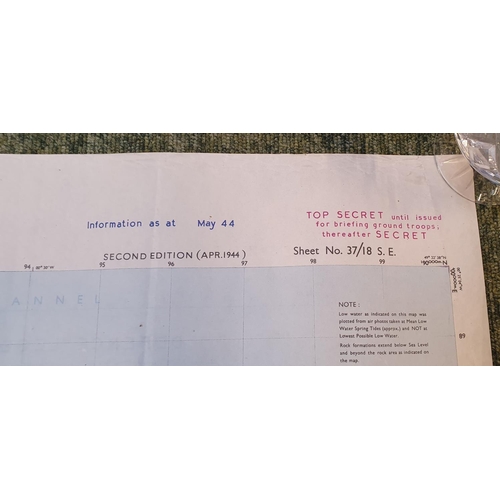 TOP SECRET until issued
for briefing ground troops;
thereafter SECRET
Information as at May 44
SECOND EDITION (APR. 1944)
Sheet No. 37/18 S. E.
94
95
96
97
98
99
ANNEL
NOTE:
Low water as indicated on this map was
plotted from air photos taken at Mean Low
Water Spring Tides (approx.) and NOT at
Lowest Possible Low Water
Rock formations extend below Sea Level
and beyond the rock area as indicated
on the map.
89